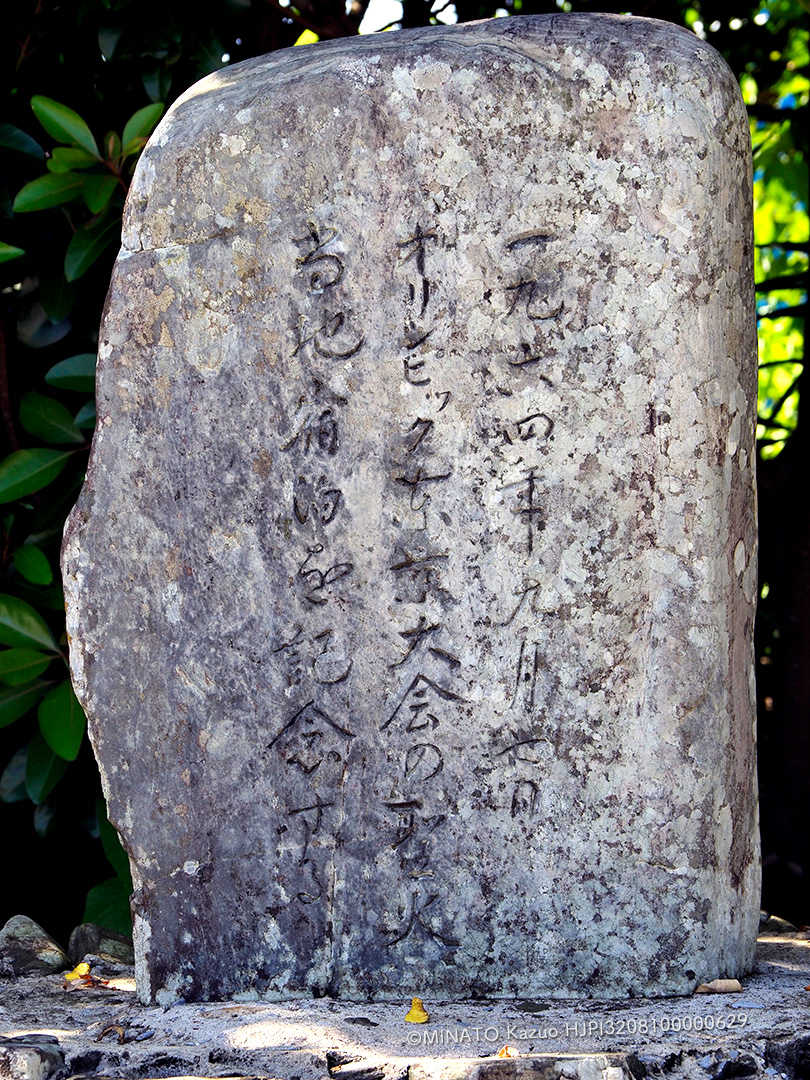 一九六四年九月七日
オリンピック東京大会の聖火
当地宿泊を記念する
©MINATO Kazuo HJPI3208100000629